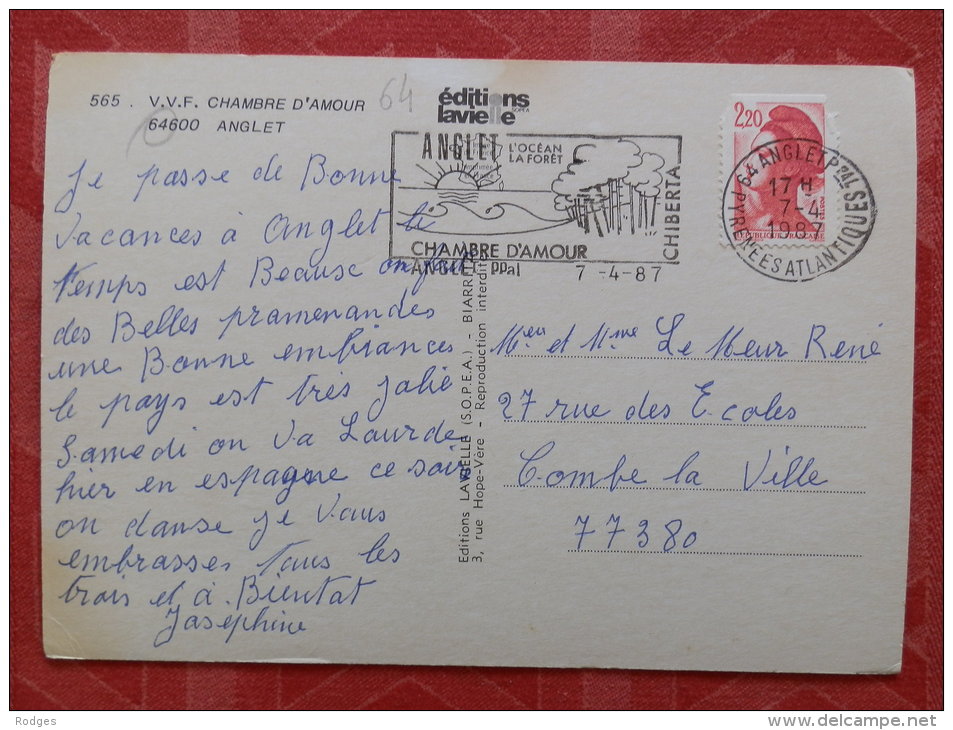 565 . V.V.F. CHAMBRE D'AMOUR
64600 ANGLET
64
éditions
lavielle
SOPEA
ANGLET
L'OCÉAN
LA FORÊT
CHIBERTA
CHAMBRE D'AMOUR
ANGLET PPal 7 -4-87
2,20
64 ANGLET Ppal
17 H
7-4
1987
PYRENEES ATLANTIQUES
je passe de Bonne
vacances à Anglet le
temps est Beause on fait
des Belles pramenandes
une Bonne embiances
le pays est très jolie
Samedi on va Laurde
hier en espagne ce soir
on danse je vous
embrasses tous les
trois et à Bientat
Jasephine
Editions LAVIELLE (S.O.P.E.A.) - BIARRITZ
3, rue Hope-Vère - Reproduction interdite
Meu et Mme Le Meur René
27 rue des Ecoles
Combe la Ville
77380
Rodges
delcampe.net